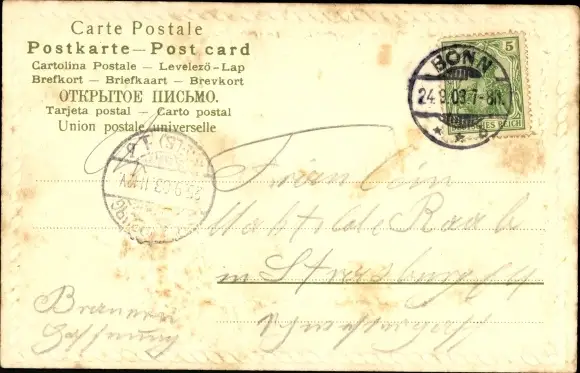 Carte Postale
Postkarte — Post card
Cartolina Postale — Levelező-Lap
Brefkort — Briefkaart — Brevkort
ОТКРЫТОЕ ПИСЬМО.
Tarjeta postal — Carto postal
Union postale universelle
5
BONN
24.9.03.7-8N.
DEUTSCHES REICH
25.9.03
Fräulein
Mathilde Raab
in Strassburg i/E
Brauerei
Hoffnung